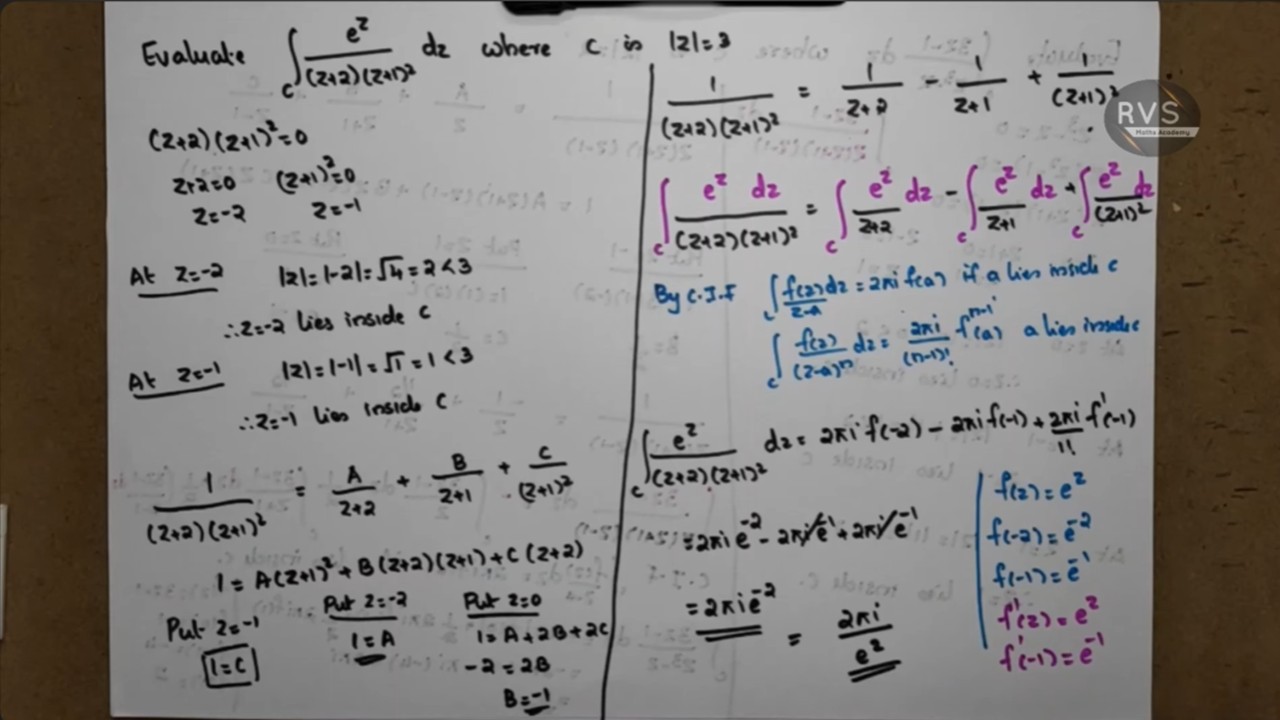 Evaluate ∫_C e^z/((z+2)(z+1)^2) dz where C is |z|=3
(z+2)(z+1)^2=0
z+2=0 (z+1)^2=0
z=-2 z=-1
At z=-2 |z|=|-2|=√4=2<3
∴z=-2 lies inside C
At z=-1 |z|=|-1|=√1=1<3
∴z=-1 lies inside C
1/((z+2)(z+1)^2) = A/(z+2) + B/(z+1) + C/(z+1)^2
1=A(z+1)^2+B(z+2)(z+1)+C(z+2)
Put z=-1
1=C
Put z=-2
1=A
Put z=0
1=A+2B+2C
-2=2B
B=-1
1/((z+2)(z+1)^2) = 1/(z+2) - 1/(z+1) + 1/(z+1)^2
RVS
Maths Academy
∫_C e^z dz/((z+2)(z+1)^2) = ∫_C e^z/(z+2) dz - ∫_C e^z/(z+1) dz + ∫_C e^z/(z+1)^2 dz
By C.I.F ∫_C f(z)/(z-a) dz=2πi f(a) if a lies inside C
∫_C f(z)/(z-a)^n dz= 2πi/(n-1)! f^(n-1)(a) a lies inside C
∫_C e^z/((z+2)(z+1)^2) dz=2πi f(-2) - 2πi f(-1)+ 2πi/1! f'(-1)
=2πi e^-2 - 2πi e^-1 + 2πi e^-1
=2πi e^-2 = 2πi/e^2
f(z)=e^z
f(-2)=e^-2
f(-1)=e^-1
f'(z)=e^z
f'(-1)=e^-1